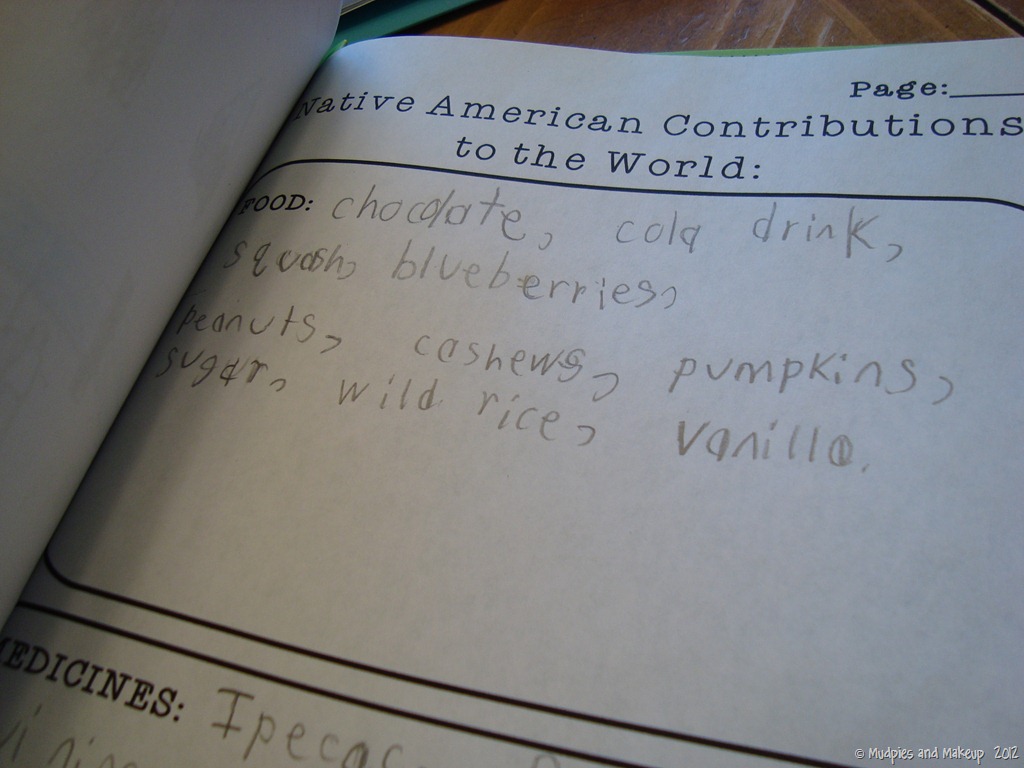 Page:
Native American Contributions
to the World:
FOOD: chocolate, cola drink,
squash, blueberries,
peanuts, cashews, pumpkins,
sugar, wild rice, vanilla.
MEDICINES: Ipecac
© Mudpies and Makeup 2012